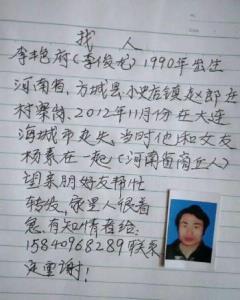 找 人
李艳府(李俊龙)1990年出生
河南省,方城县小史店镇赵郎庄
村寨岗,2012年11月份在大连
海城市走失,当时他和女友
杨素在一起(河南省商丘人)
望亲朋好友帮忙
转发,家里人很着
急,有知情者给:
15840968289联系
定重谢!